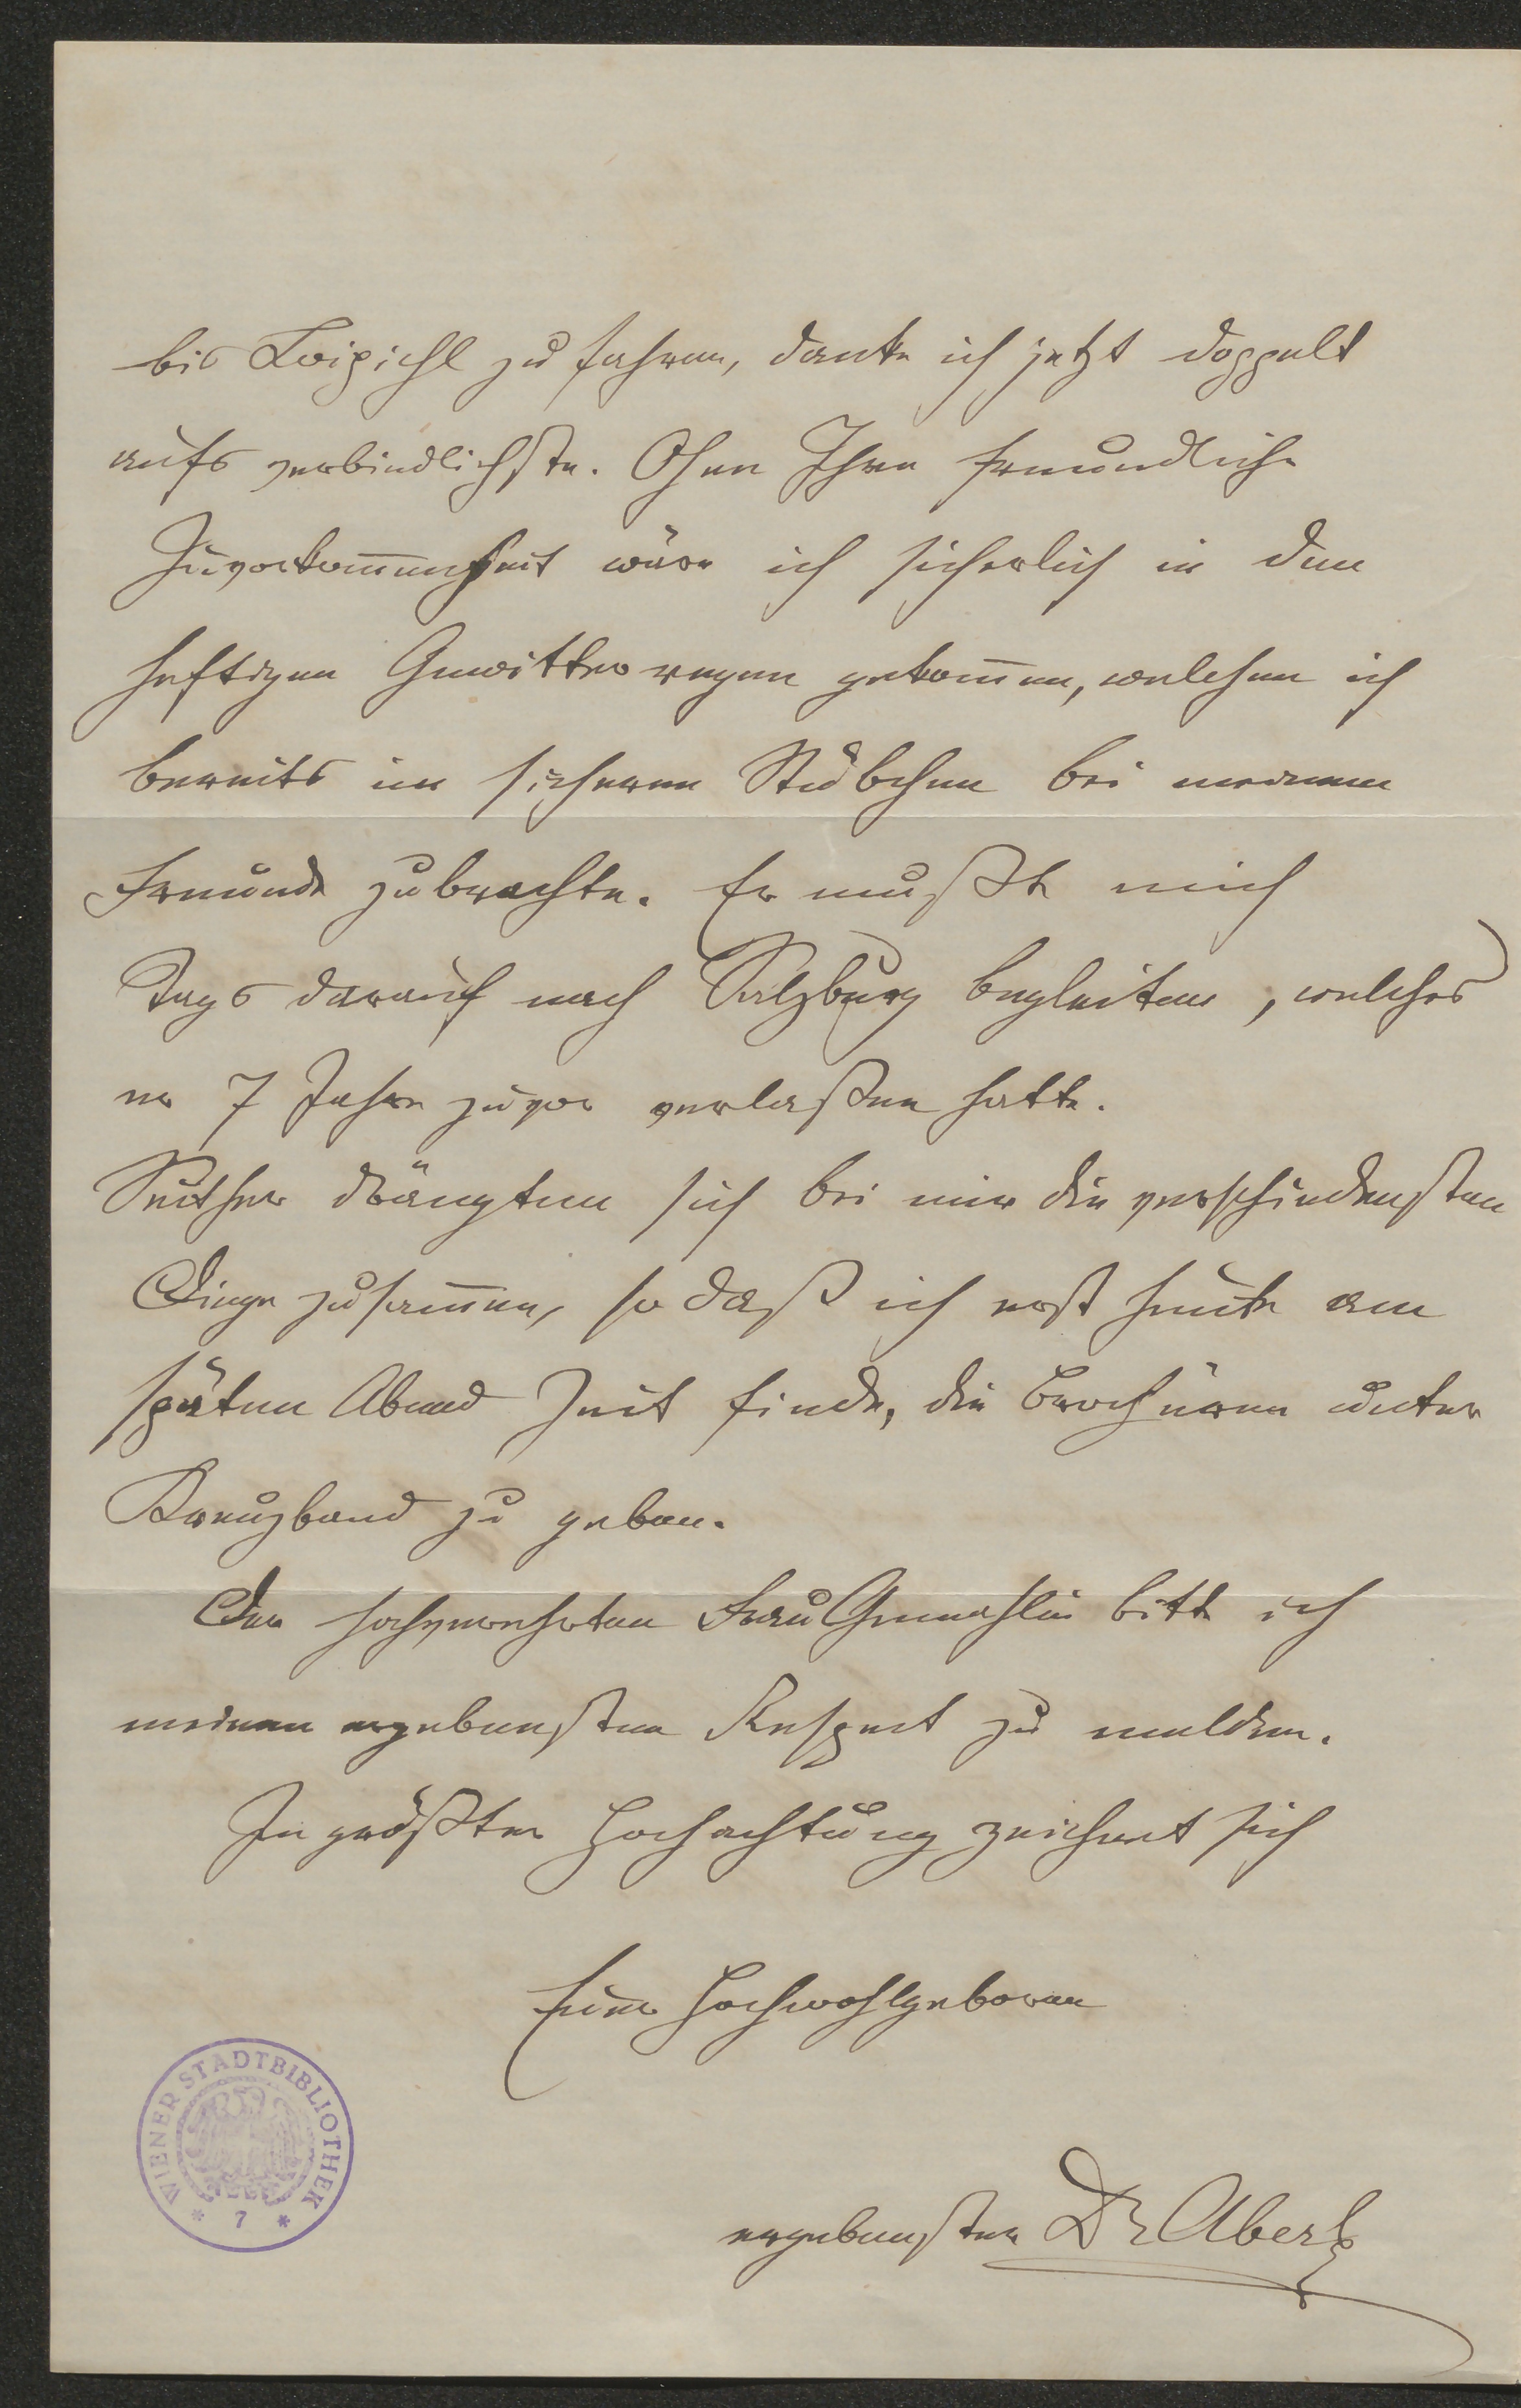 bis Loipichl zu fahren, danke ich jetzt doppelt
aufs verbindlichste. Ohne Ihre freundliche
Zuvorkom̅enheit wäre ich sicherlich in den
heftigen Gewitterregen gekom̅en, welchen ich
bereits im sicheren Stübchen bei meinem
Freunde zubrachte. Er mußte mich
Tags darauf nach Salzburg begleiten, welches
er 7 Jahre zuvor verlaßen hatte.
Seither drängten sich bei mir die verschiedensten
Dinge zusam̅en, so daß ich erst heute am
späten Abend Zeit finde, die Brochüren unter
Kreuzband zu geben.
Der hochverehrten Frau Gemahlin bitte ich
meinen ergebensten Respect zu melden.
In größter Hochachtung zeichnet sich
Euer Hochwohlgeboren
ergebenster Dr Aberle
WIENER STADTBIBLIOTHEK
* 7 *